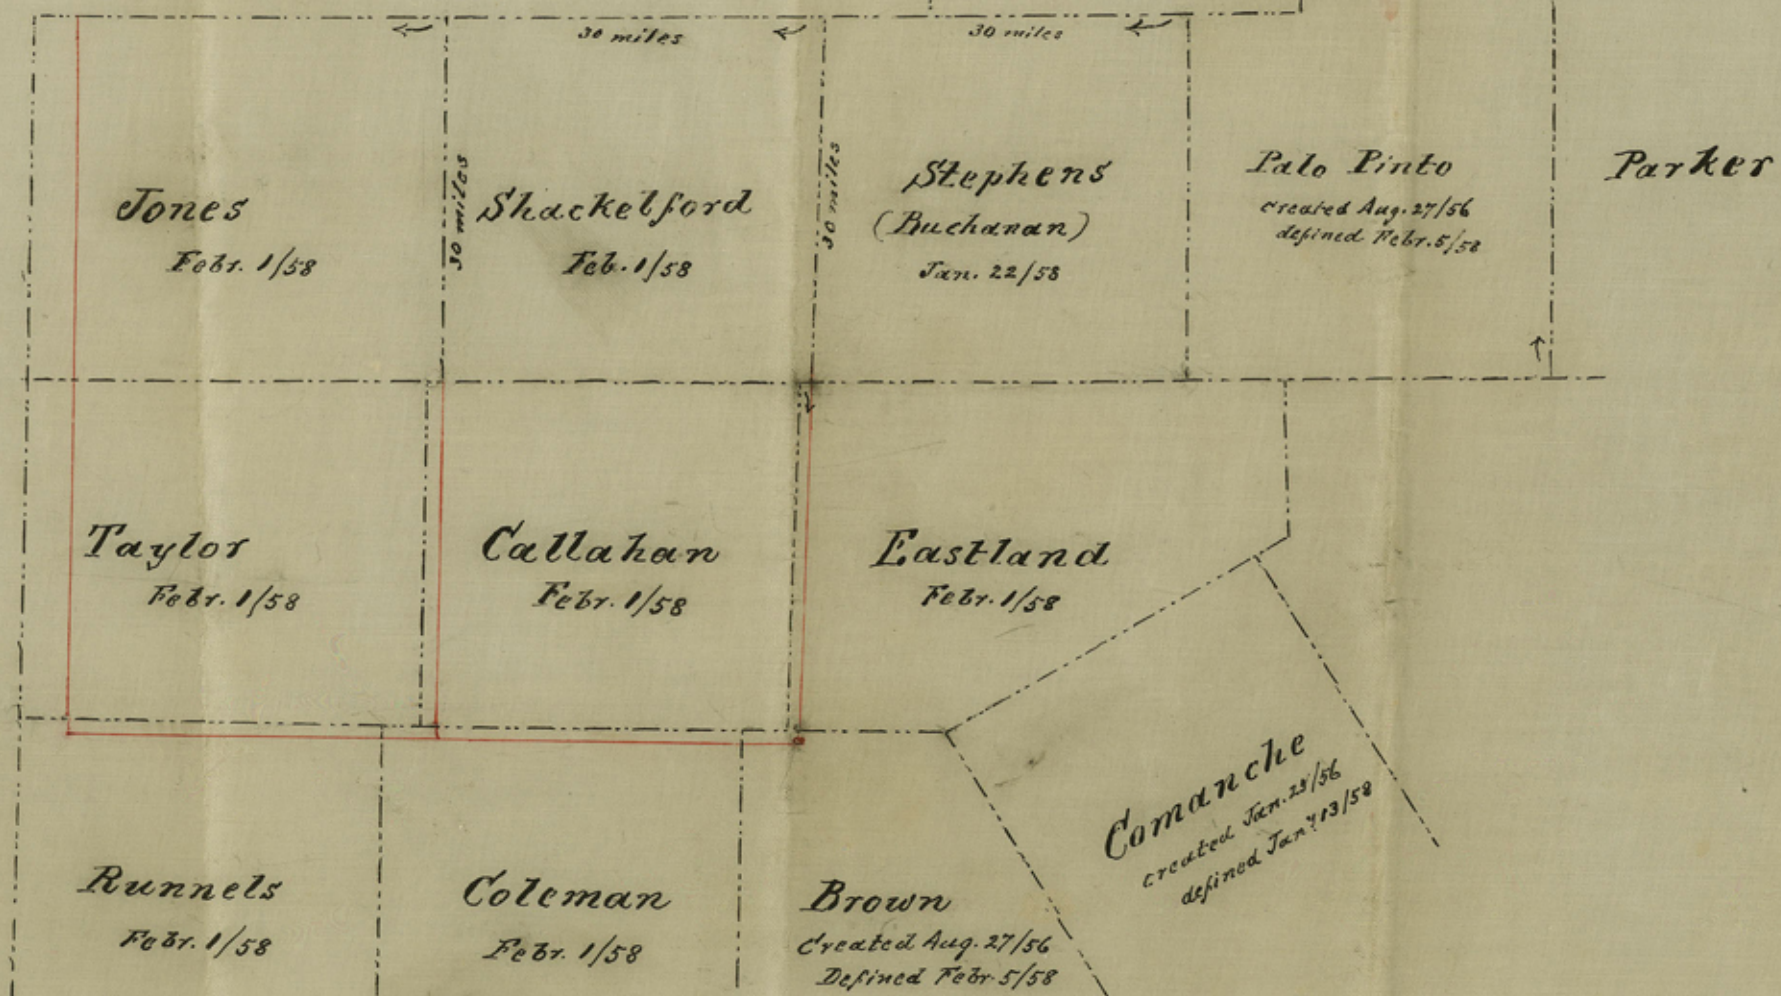 30 miles
30 miles
Jones
Febr. 1/58
30 miles
Shackelford
Feb. 1/58
30 miles
Stephens
(Buchanan)
Jan. 22/58
Palo Pinto
created Aug. 27/56
defined Febr. 5/58
Parker
Taylor
Febr. 1/58
Callahan
Febr. 1/58
Eastland
Febr. 1/58
Comanche
created Jan. 25/56
defined Jany 13/58
Runnels
Febr. 1/58
Coleman
Febr. 1/58
Brown
Created Aug. 27/56
Defined Febr. 5/58